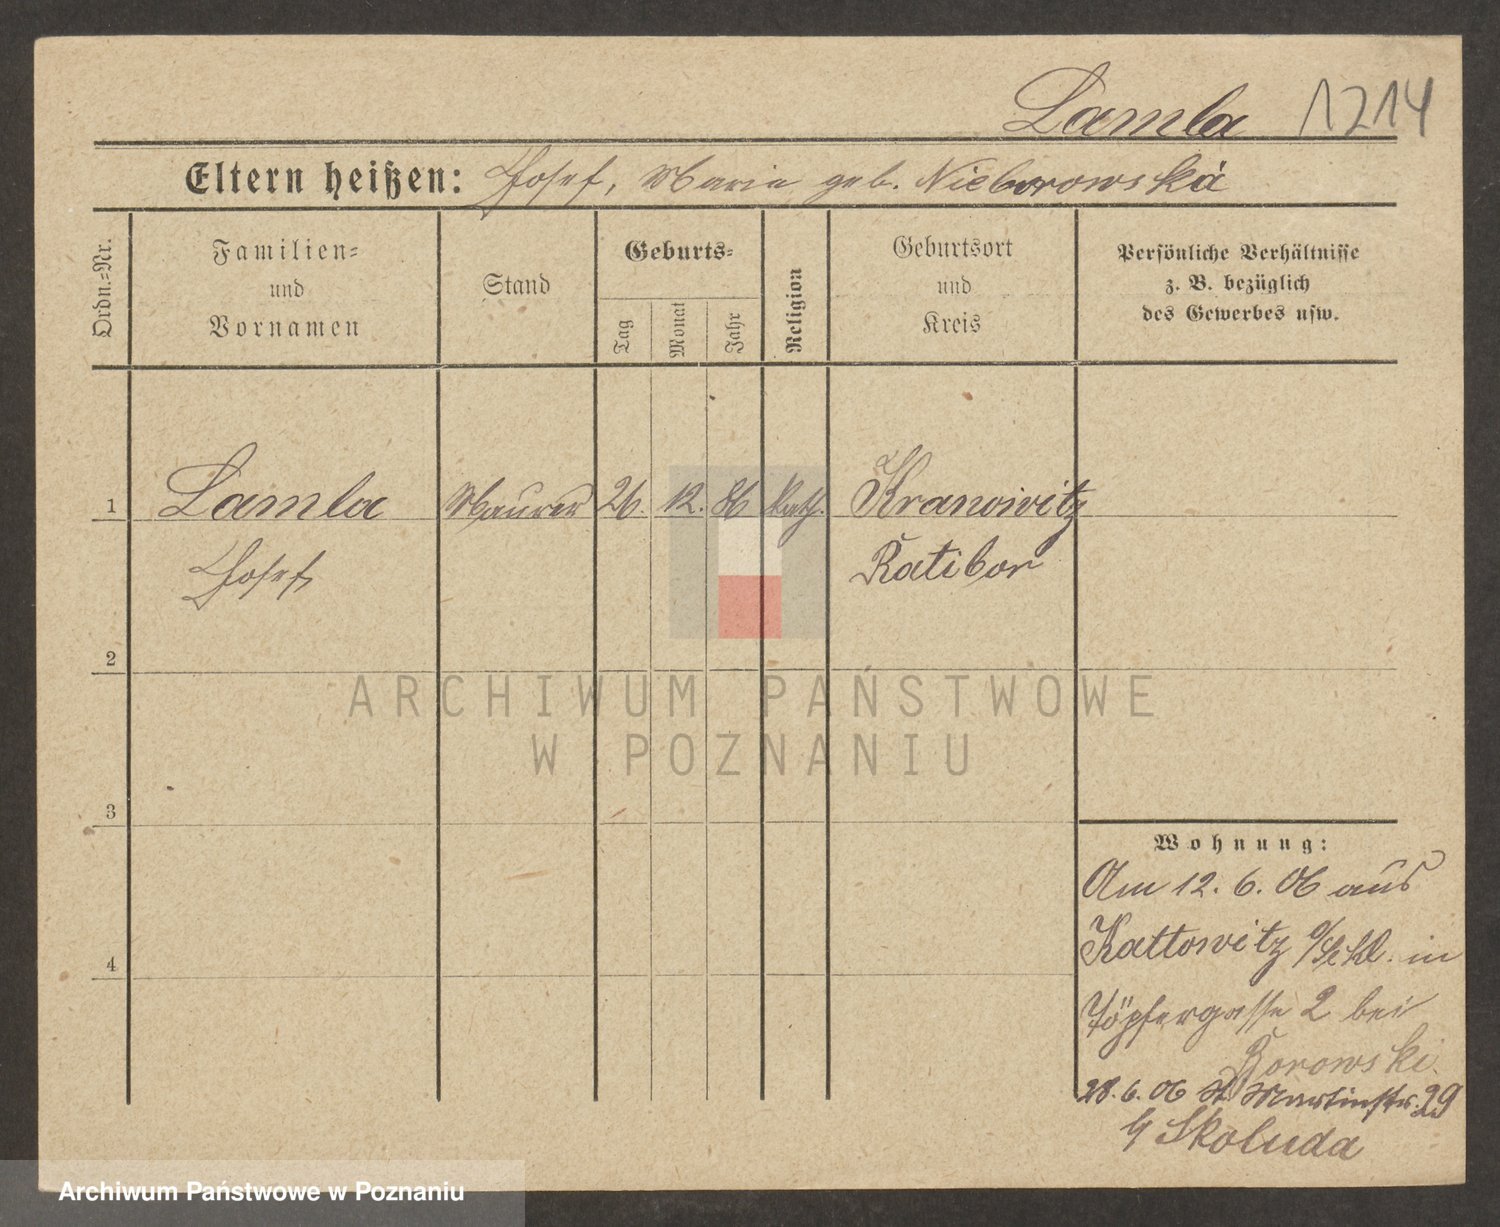 Lamla 1214
Eltern heißen: Josef, Marie geb. Nieborowska
Ordn.-Nr.
Familien-
und
Vornamen
Stand
Geburts-
Tag
Monat
Jahr
Religion
Geburtsort
und
Kreis
Persönliche Verhältnisse
z. B. bezüglich
des Gewerbes usw.
1 Lamla Maurer 26. 12. 86 Kath. Kranowitz
Josef Ratibor
2
3
4
Wohnung:
Am 12. 6. 06 aus
Kattowitz O/Schl. in
Töpfergasse 2 bei
Borowski.
28. 6. 06 St. Martinstr. 29
b/ Skoluda
ARCHIWUM PAŃSTWOWE
W POZNANIU
Archiwum Państwowe w Poznaniu